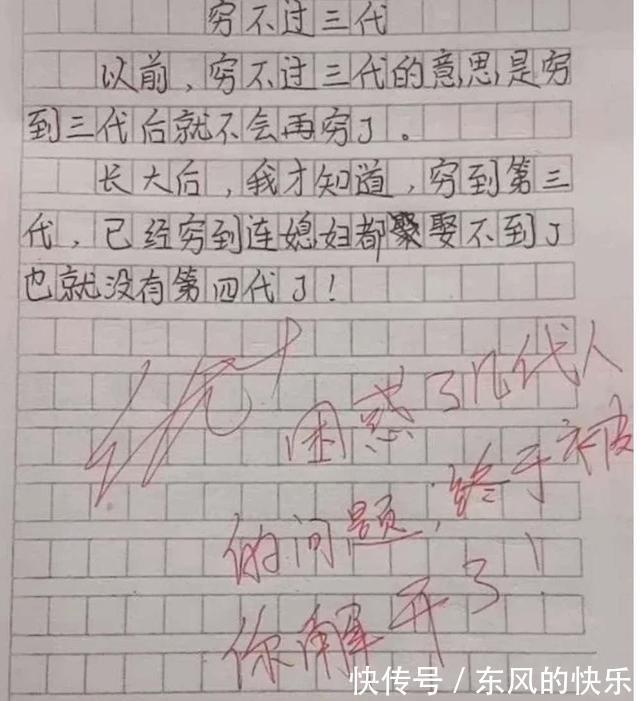 穷不过三代
以前，穷不过三代的意思是穷
到三代后就不会再穷了。
长大后，我才知道，穷到第三
代，已经穷到连媳妇都娶不到了
也就没有第四代了！
优+
困惑了几代人
的问题，终于被
你解开了！
快传号/东风的快乐